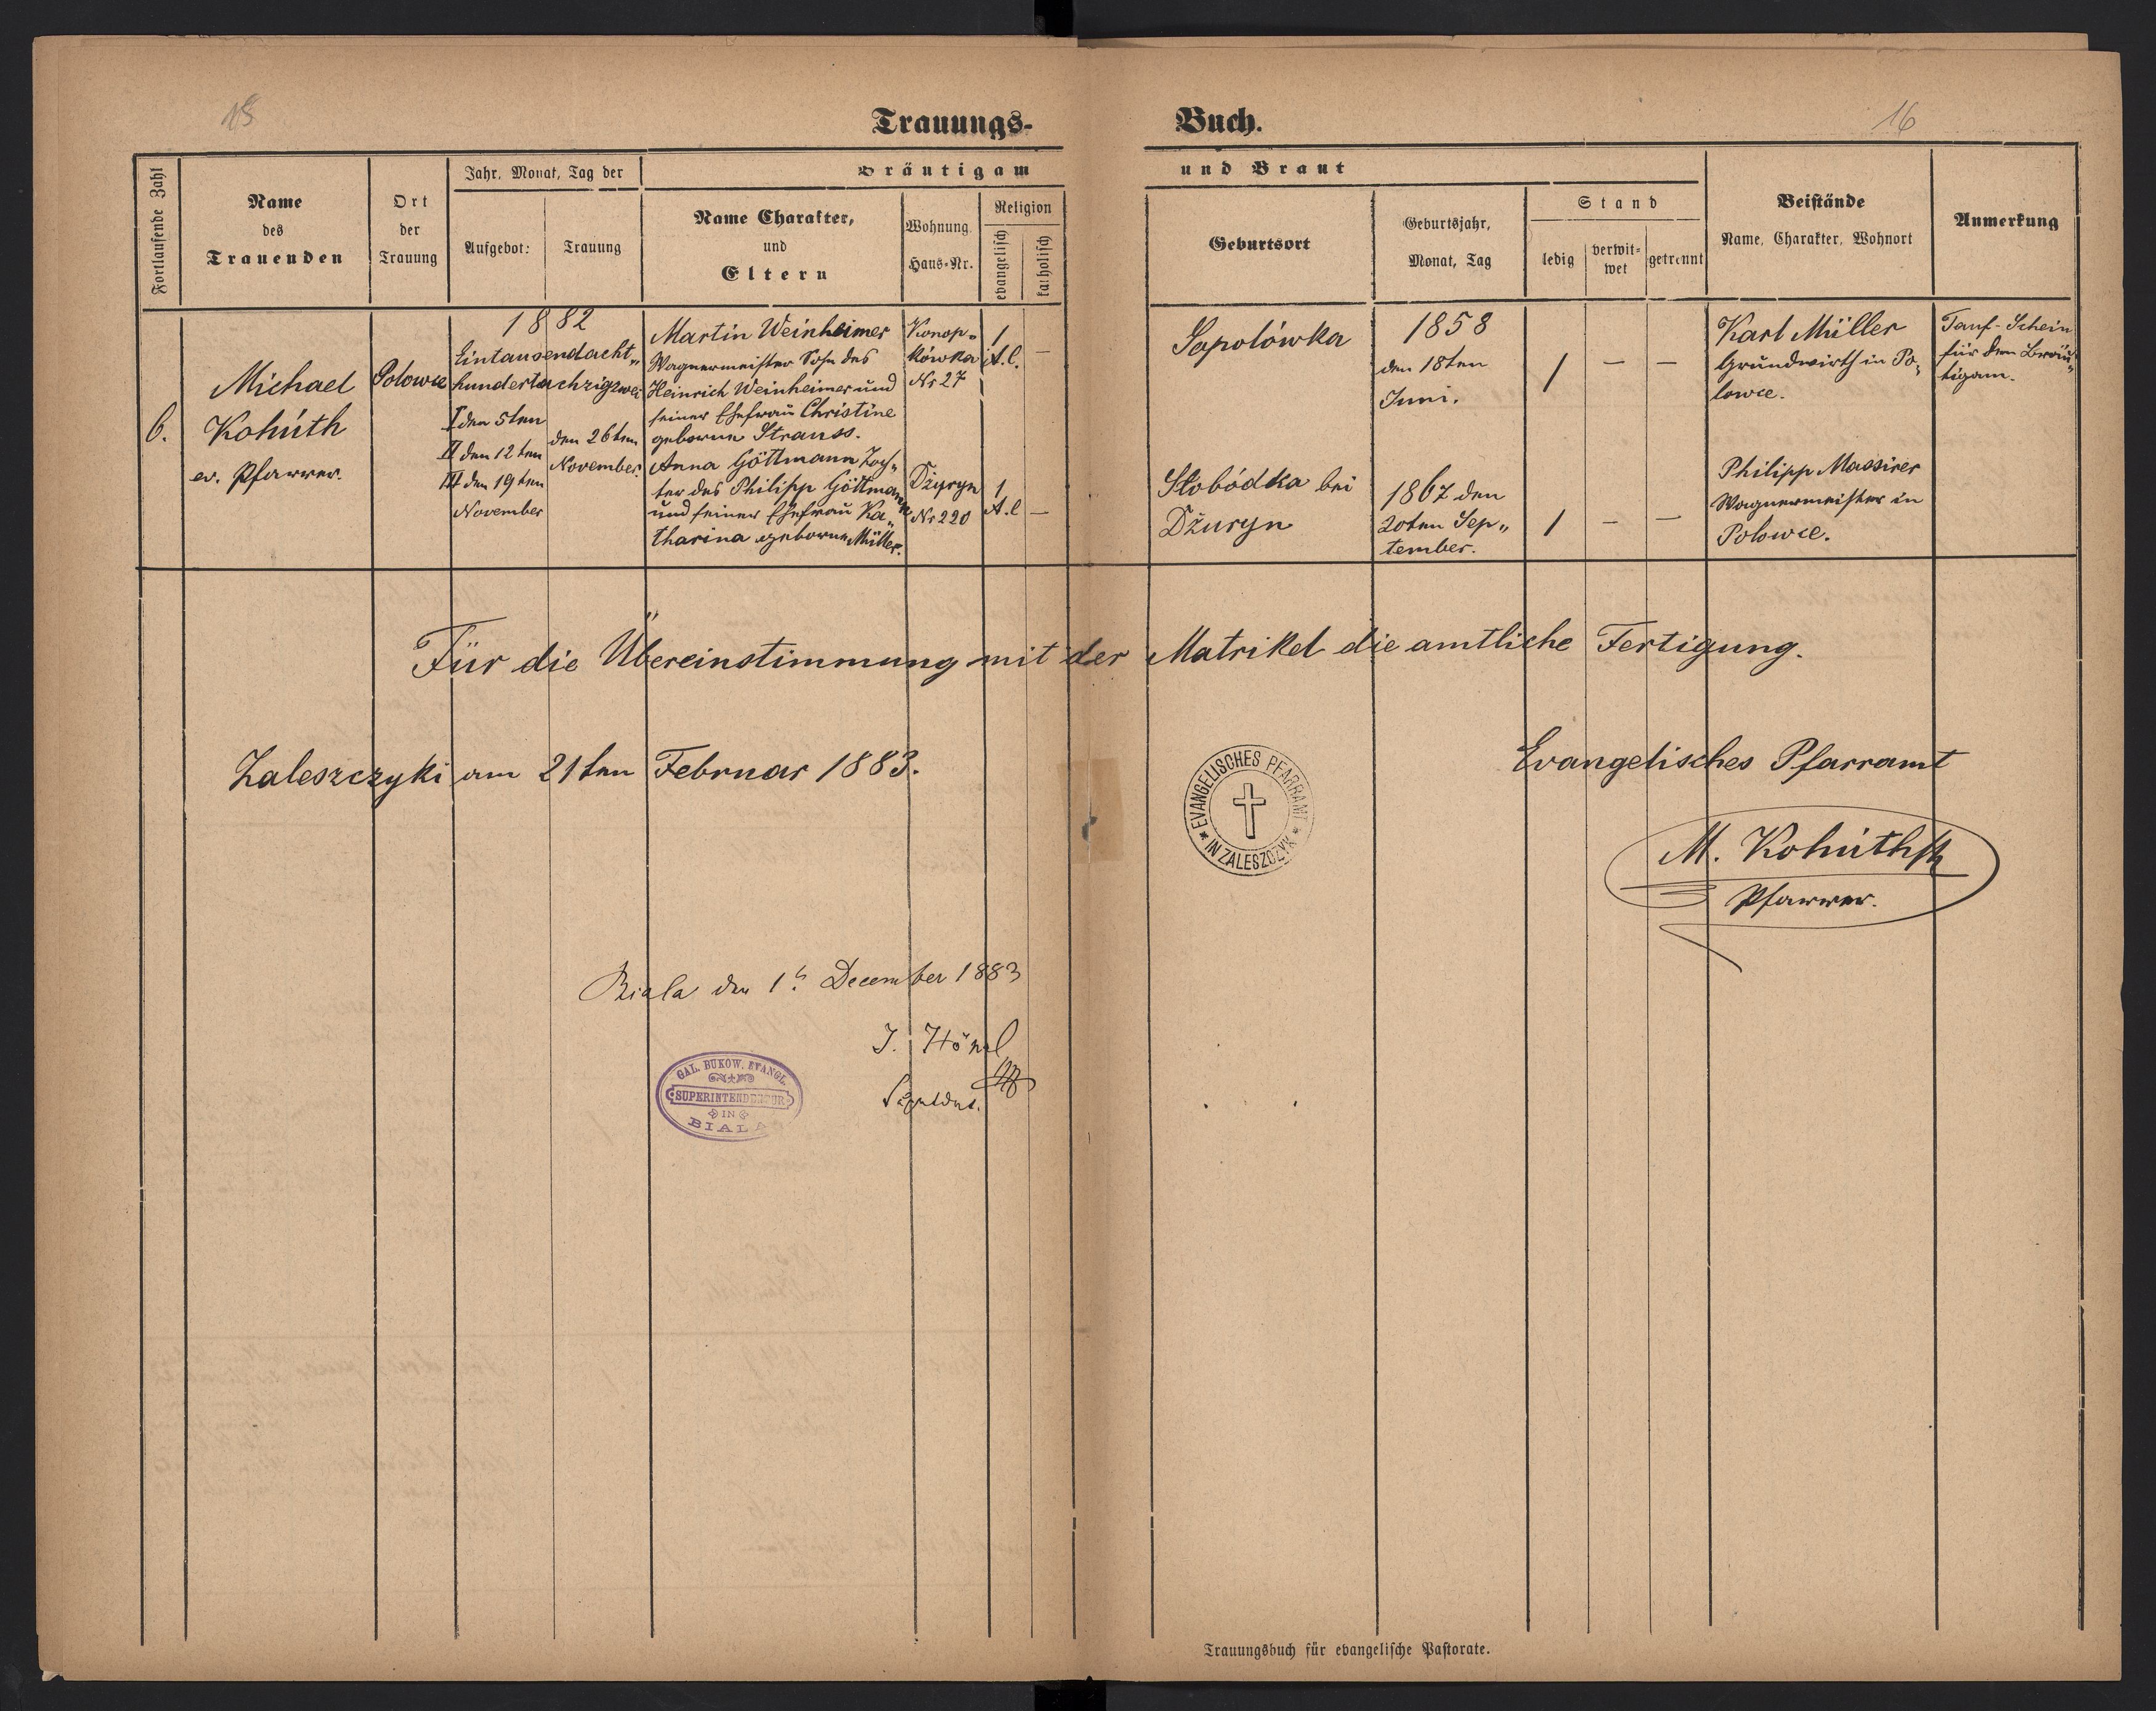 15
16
Trauungs-
Buch.
Fortlaufende Zahl
Name
des
Trauenden
Ort
der
Trauung
Jahr, Monat, Tag der
Aufgebot:
Trauung
Bräutigam
Name Charakter,
und
Eltern
Wohnung
Haus-Nr.
Religion
evangelisch
katholisch
und Braut
Geburtsort
Geburtsjahr,
Monat, Tag
Stand
ledig
verwit-
wet
getrennt
Beistände
Name, Charakter, Wohnort
Anmerkung
6.
Michael
Kohúth
ev. Pfarrer.
Polowce
1882
Eintausendacht„
hundertachzigzwei
I den 5ten
II den 12ten
III den 19ten
November
den 26ten
November.
Martin Weinheimer
Wagnermeister Sohn des
Heinrich Weinheimer und
seiner Ehefrau Christine
geborne Strauss.
Anna Göttmann Toch„
ter des Philipp Göttmann
und seiner Ehefrau Ka„
tharina geborne Müller.
Konop„
kówka
Nr 27
Džuryn
Nr 220
1
A.C.
—
1
A.C
—
Sapolówka
Słobódka bei
Džuryn
1858
den 18ten
Juni.
1867 den
20ten Sep„
tember.
1 — —
1 — —
Karl Müller
Grundwirth in Po„
lowce.
Philipp Massirer
Wagnermeister in
Polowce.
Tauf-Schein
für den Bräu„
tigam.
Für die Übereinstimmung mit der Matrikel die amtliche Fertigung.
Zaleszczyki am 21ten Februar 1883.
Evangelisches Pfarramt
EVANGELISCHES PFARRAMT
IN ZALESZCZYK
M. Kohúth
Pfarrer.
Biala den 1t December 1883
J. Hönel
GAL. BUKOW. EVANGL.
SUPERINTENDENTUR
IN
BIALA
Trauungsbuch für evangelische Pastorate.